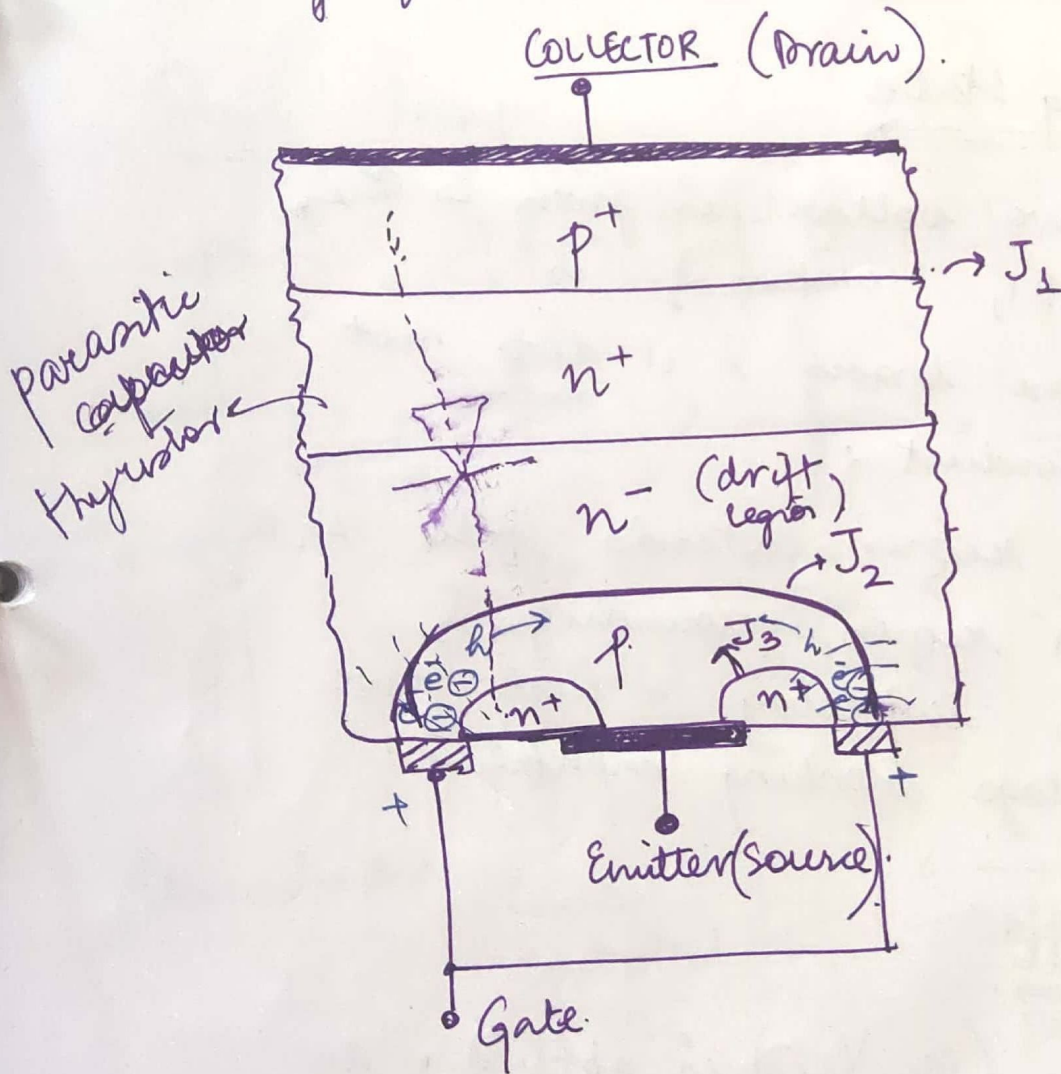 COLLECTOR (Drain).
p+
J1
n+
parasitic
capacitor
thyristor
n- (drift
region)
J2
h
p.
J3
h
e-
e-
n+
n+
+
+
Emitter(source).
Gate.